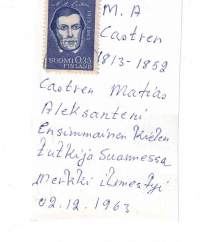 M. A
Castren
1813-1852
SUOMI 0,35
FINLAND
Castren Matias
Aleksanteri
Ensimmäinen kielen
tutkija Suomessa
merkki ilmestyi
02.12.1963